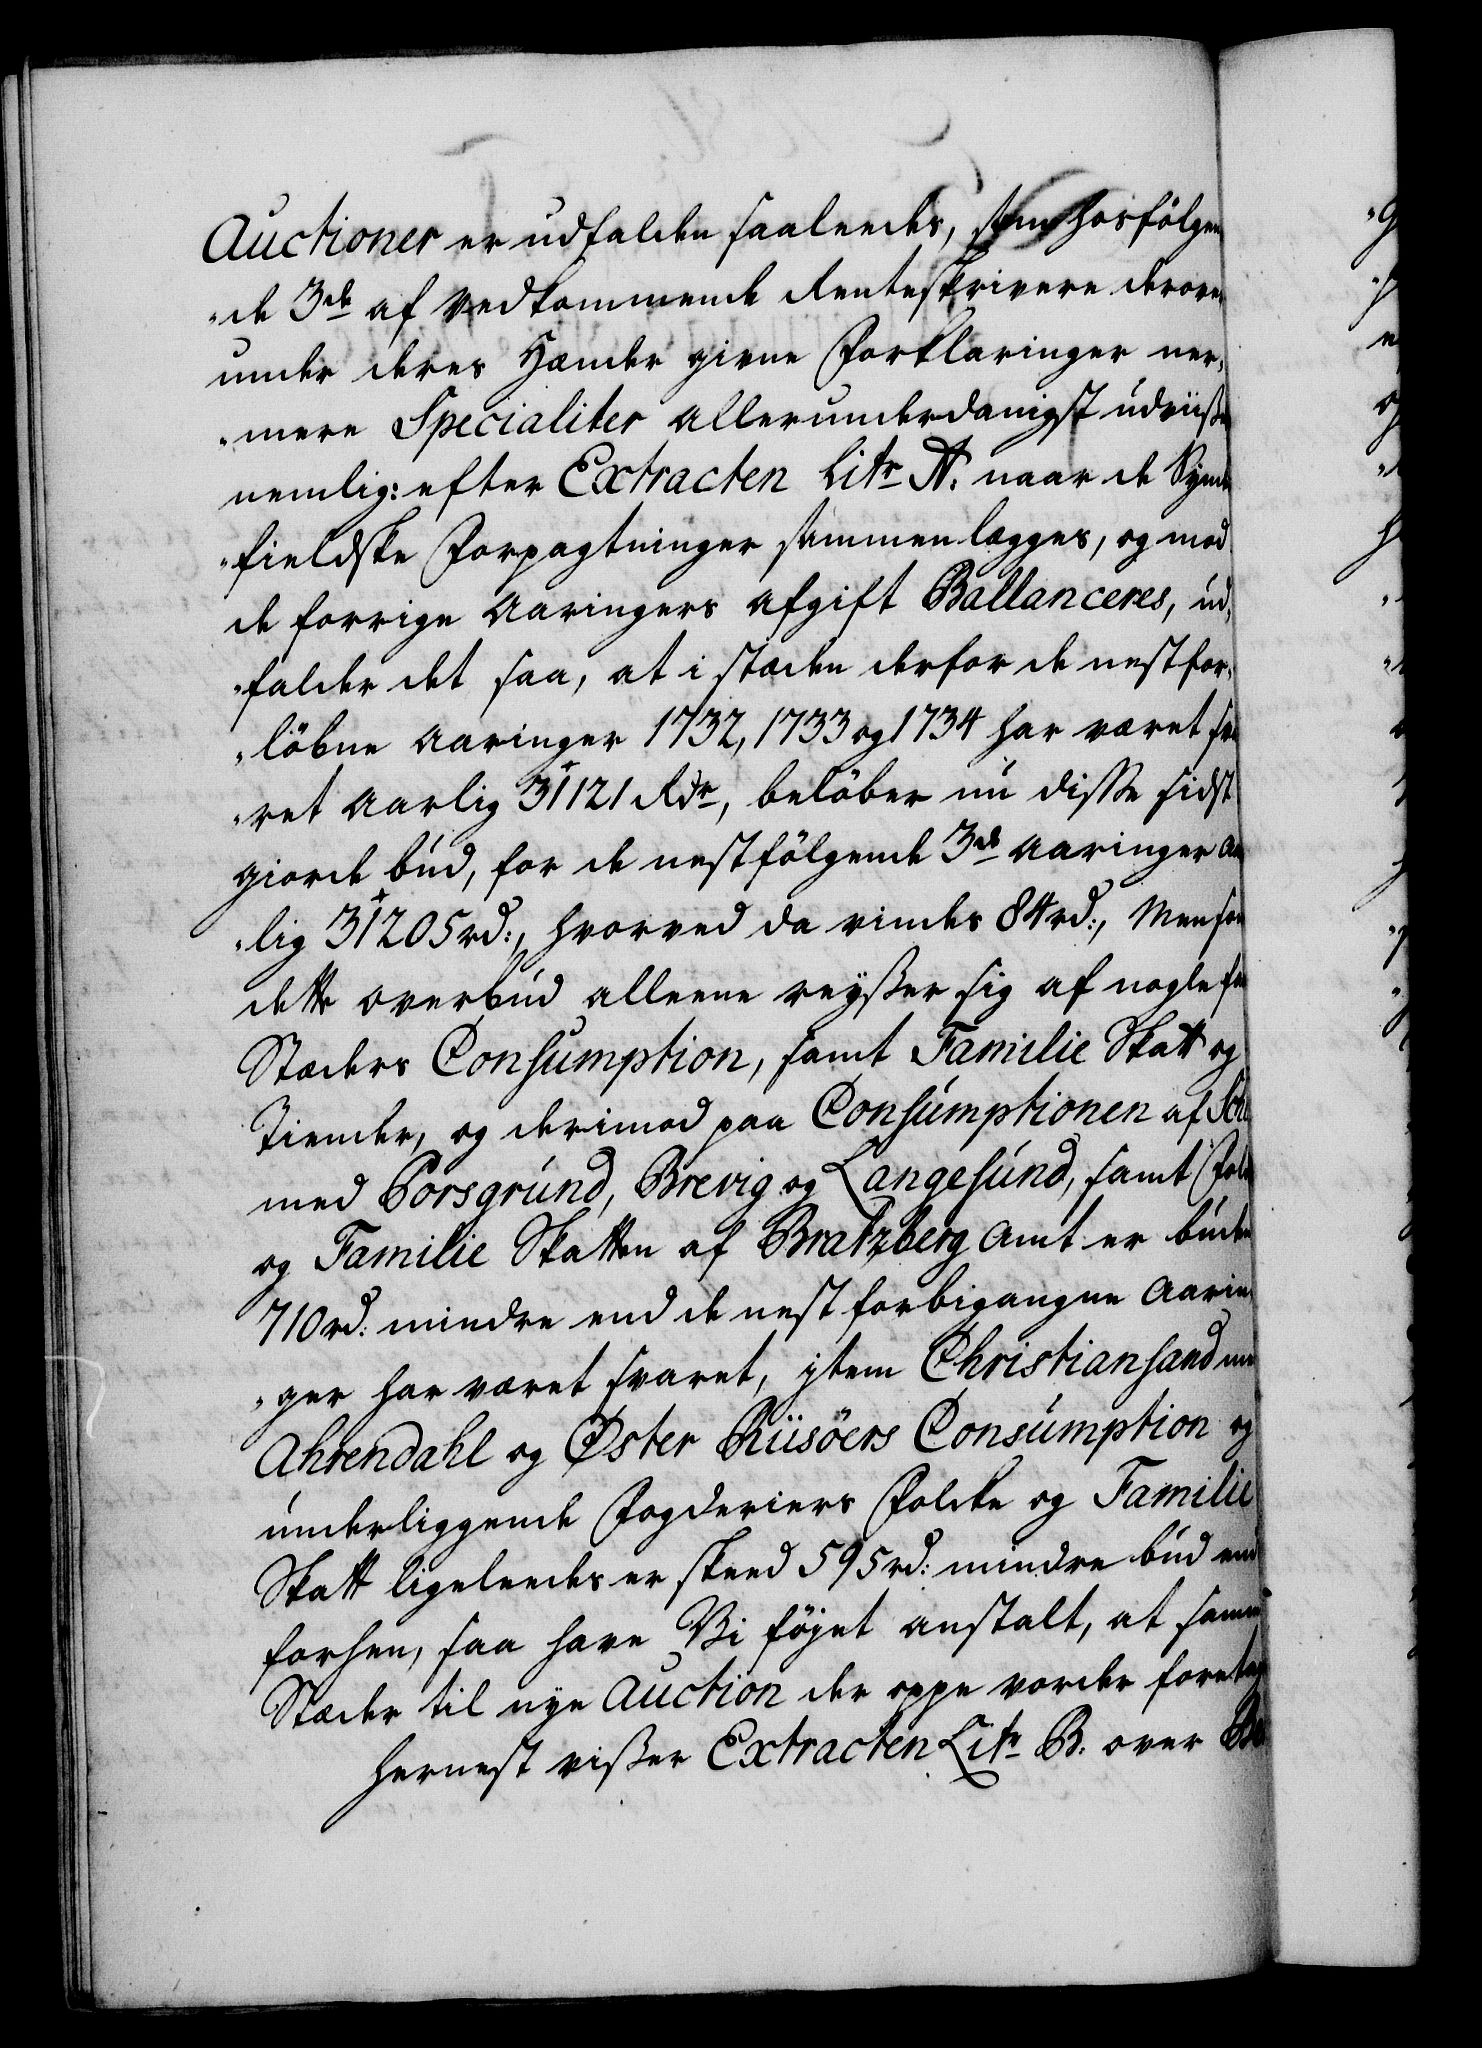 Auctioner er udfalden saaleedes, som hosfölgen
"de 3de af vedkommende Renteskrivere derover
under deres Hænder givne Forklaringer ner,
"mere Specialiter allerunderdanigst udviißer
nemlig: efter Extracten Litr A. naar de Synden
"fieldske Forpagtninger sammenlegges, og mod
de forrige Aaringers afgift Ballanceres, ud,
"falder det saa, at i stæden derfor de nestfor,
"löbne Aaringer 1732, 1733 og 1734 har været sva
"ret aarlig 31121 Rdr, belöber nu disse sidst
giorde bud, for de nestfölgende 3de Aaringer aar
"lig 31205 rd:, hvorved da vindes 84 rd:, Men som
dette overbud alleene reyßer sig af nogle faa
Stæders Consumption, samt Familie Skatt og
Tiender, og derimod paa Consumptionen af
med Porsgrund, Brevig og Langesund, samt Folke
og Familie Skatten af Bratzberg Amt er buden
710 rd: mindre end de nest forbigangne Aarin
"ger har været svaret, item Christiansand med
Ahrendahl og Øster Riisöers Consumption og
underliggende Fogderiers Folcke og Familie
Skatt ligeleedes er skeed 595 rd: mindre bud end
forhen, saa have Vi föyet anstalt, at samme
Stæder til nye Auction der oppe vorder foretagen
Hernest vißer Extracten Litr B. over